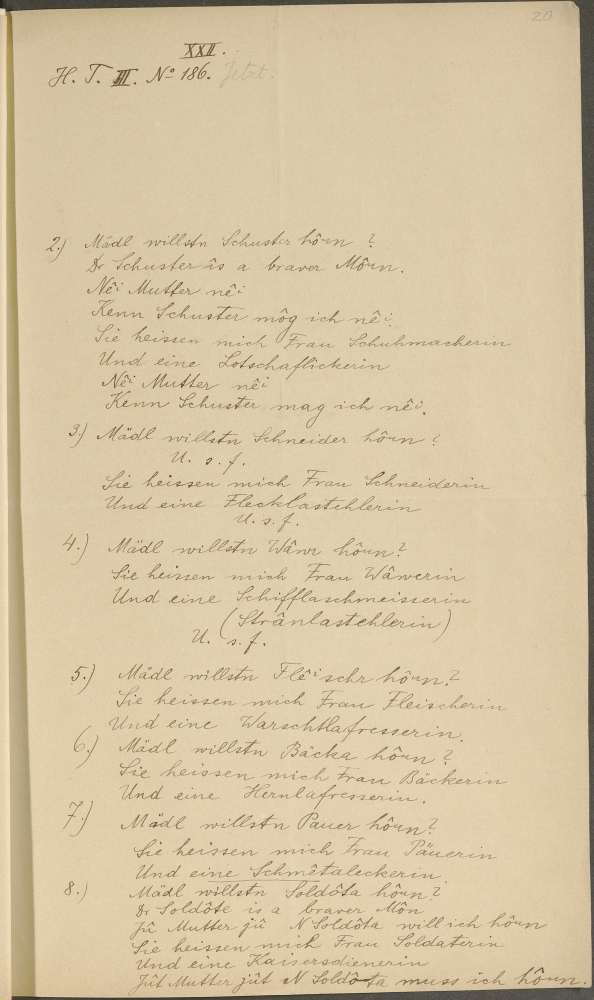 20
XXII.
H. T. III. No 186. Jetzt.
2.) Mädl willstn Schuster hôun ?
Dr Schuster is a braver Môun.
Nêi Mutter nêi
Kenn Schuster môg ich nêi.
Sie heissen mich Frau Schuhmacherin
Und eine Lotschaflickerin
Nêi Mutter nêi
Kenn Schuster mag ich nêi.
3.) Mädl willstn Schneider hôun ?
U. s. f.
Sie heissen mich Frau Schneiderin
Und eine Flecklastehlerin
U. s. f.
4.) Mädl willstn Wâwr hôun?
Sie heissen mich Frau Wâwerin
Und eine Schifflaschmeisserin
(Strânlastehlerin)
U. s. f.
5.) Mädl willstn Flêischr hôun?
Sie heissen mich Frau Fleischerin
Und eine Warschtlafresserin.
6.) Mädl willstn Bäcka hôun?
Sie heissen mich Frau Bäckerin
Und eine Hernlafresserin.
7.) Mädl willstn Pauer hôun?
Sie heissen mich Frau Päuerin
Und eine Schmêtaleckerin.
8.) Mädl willstn Soldôta hôun?
Dr Soldôte is a braver Môn
Jû Mutter jû N Soldôta will ich hôun
Sie heissen mich Frau Soldaterin
Und eine Kaisersdienerin
Jût Mutter jût N Soldôta muss ich hôun.